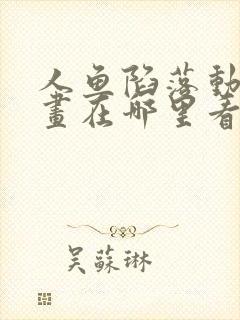 人鱼陷落動
畫在哪里看
吴蘇琳